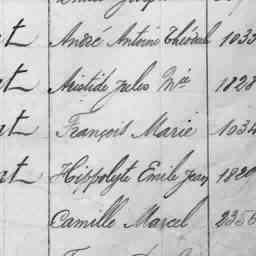 t André Antoine Théodule 1033
t Aristide Jules Mie 1828
t François Marie 1034
t Hippolyte Emile Jean 1829
Camille Marcel 2356